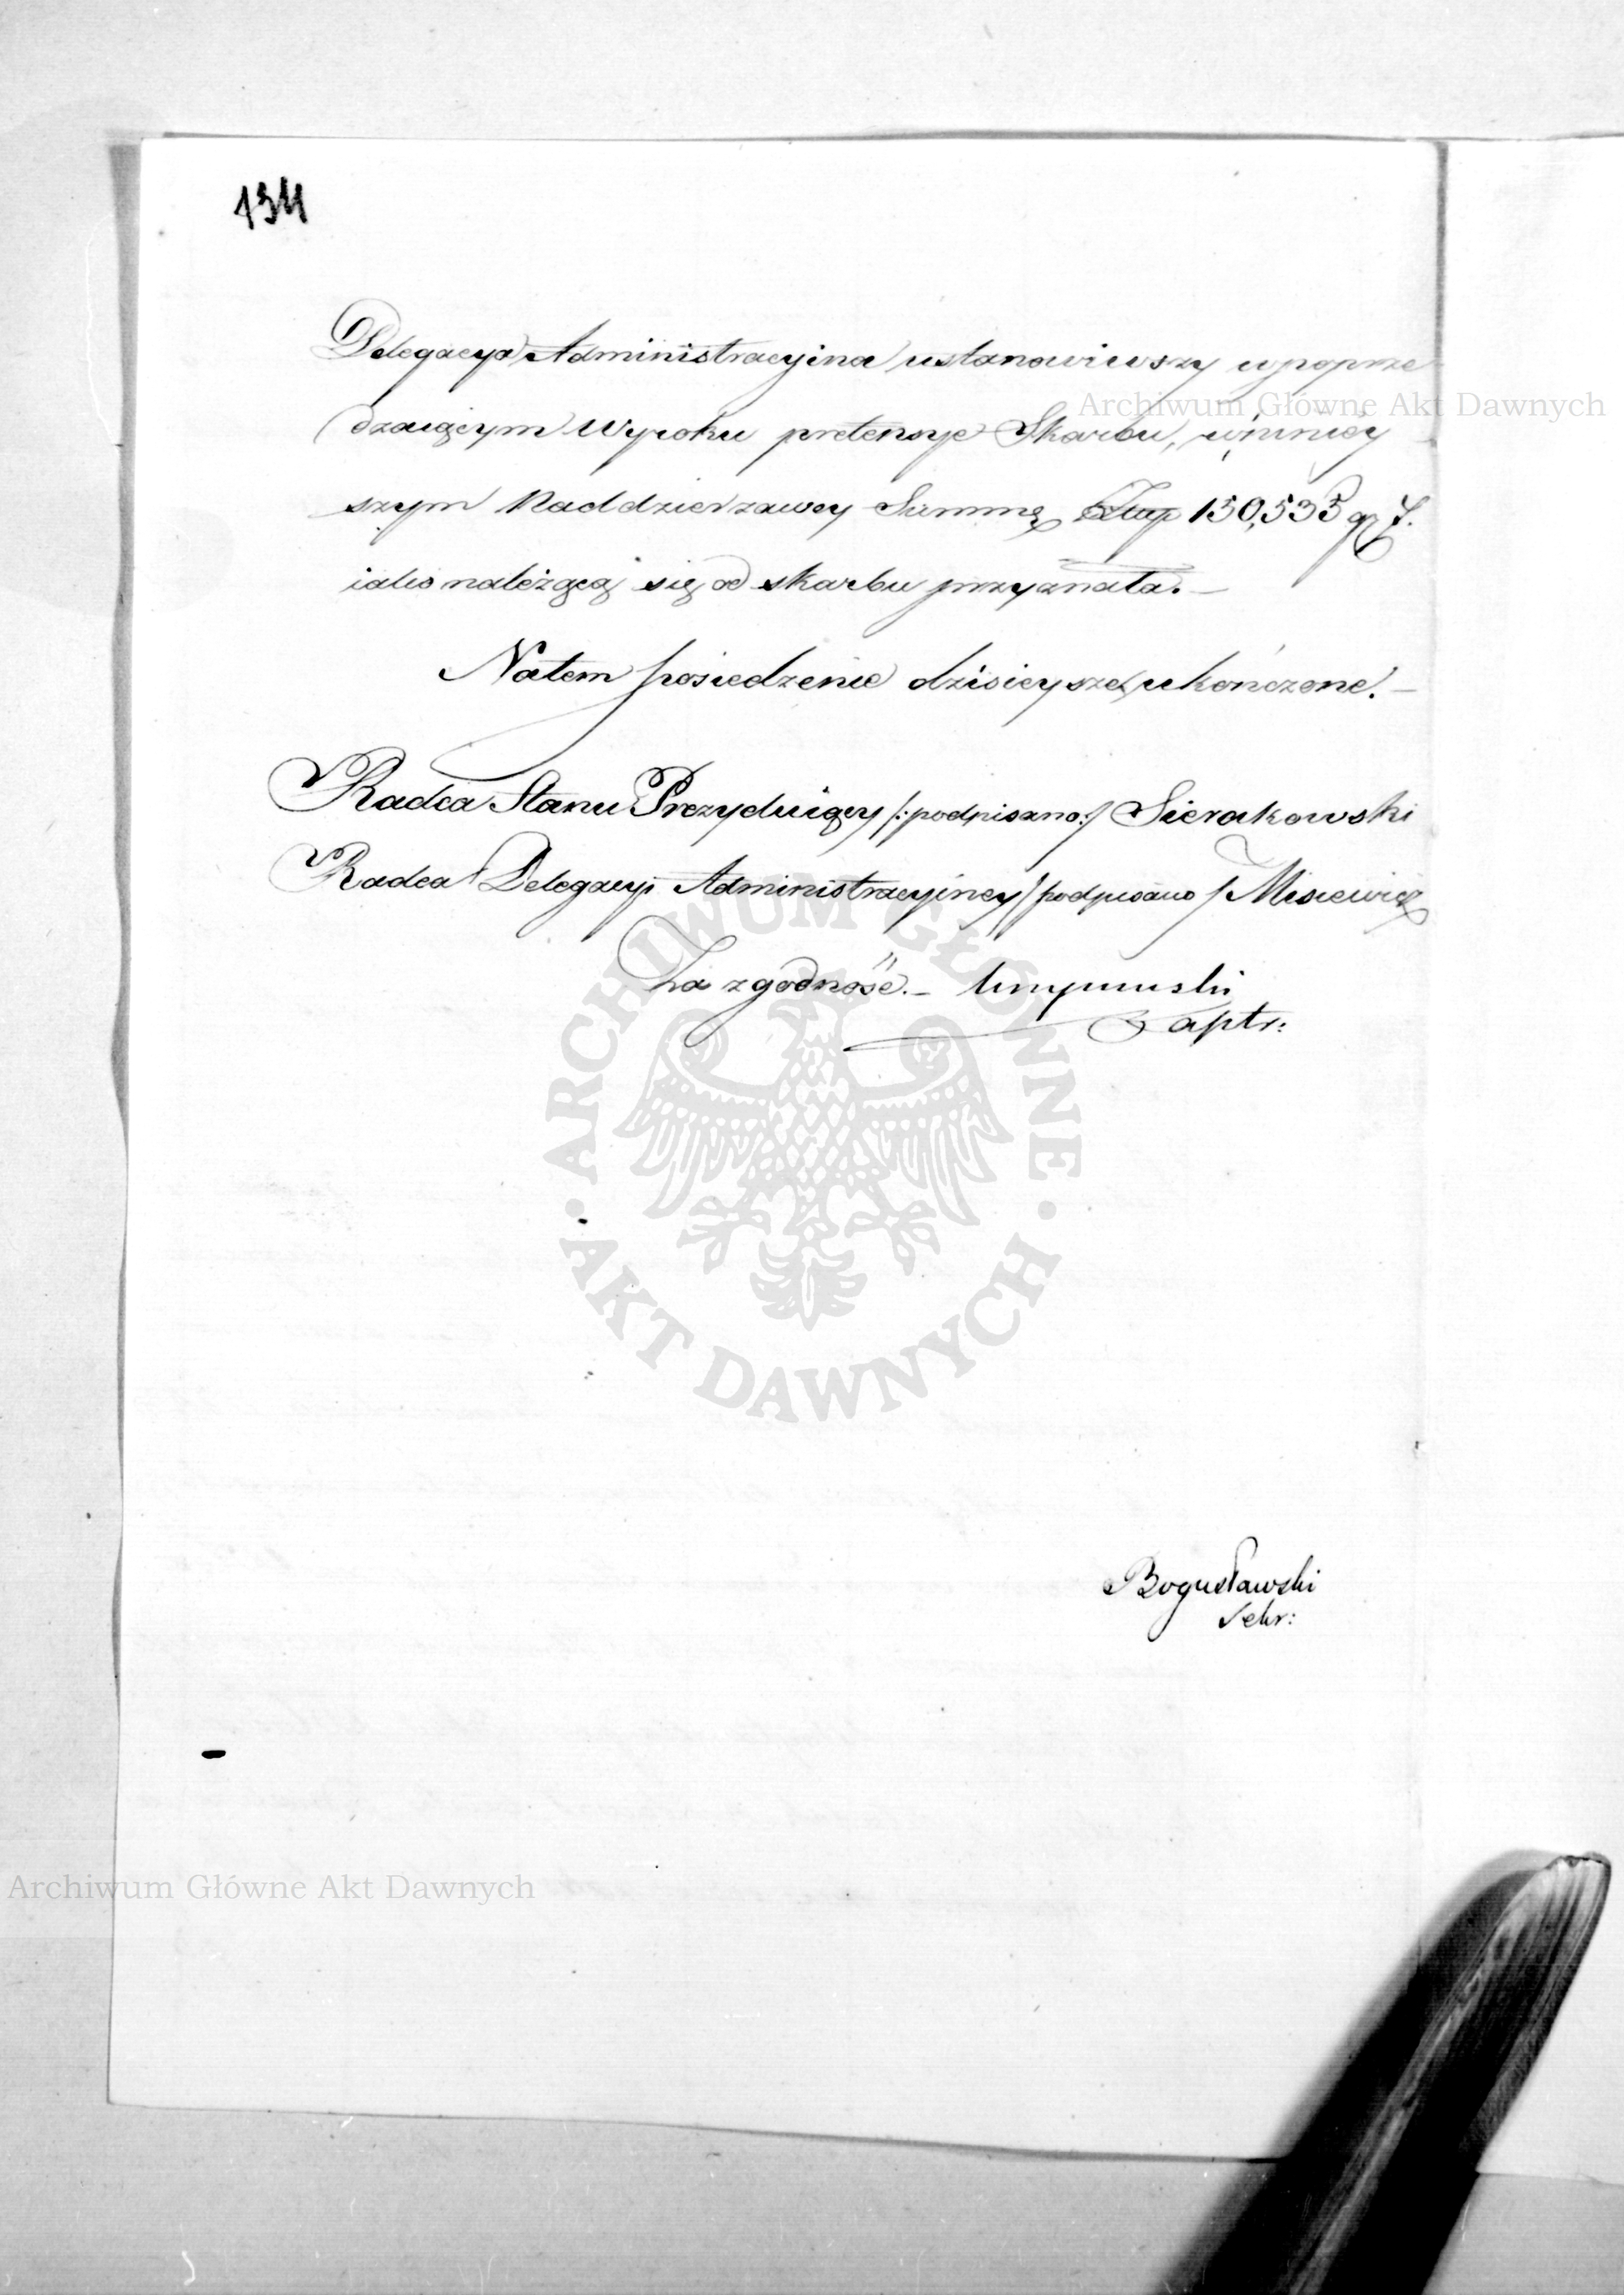 134
Delegacya Administracyina ustanowiwszy w poprze
Archiwum Główne Akt Dawnych
dzaiącym Wyroku pretensye Skarbu, w ninиey
szym Naddzierzawcy Summę Złłup 130,533 gr 7.
iako należącą się od skarbu przyznała. —
Na tem posiedzenie dzisieysze ukończone. —
Radca Stanu Prezyduiący /:podpisano:/ Sierakowski
Radca Delegacyi Administracyiney /podpisano/ Misiewicz
Za zgodność. —
aptr:
ARCHIWUM GŁÓWNE
AKT DAWNYCH
Bogusławski
Sekr:
Archiwum Główne Akt Dawnych